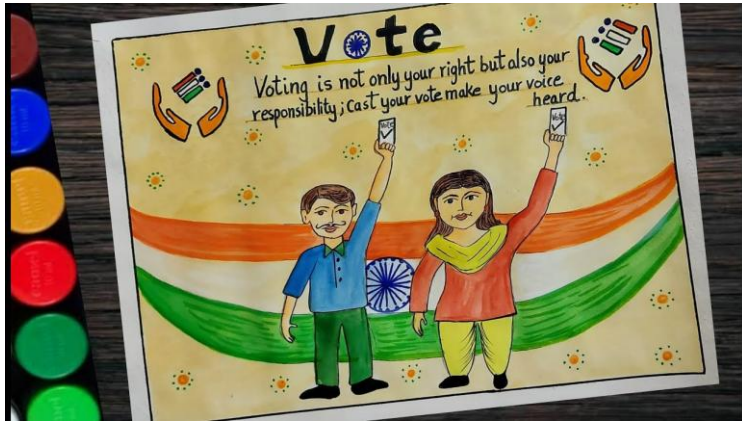 Vote
Voting is not only your right but also your
responsibility; cast your vote make your voice
heard.
Vote
Vote